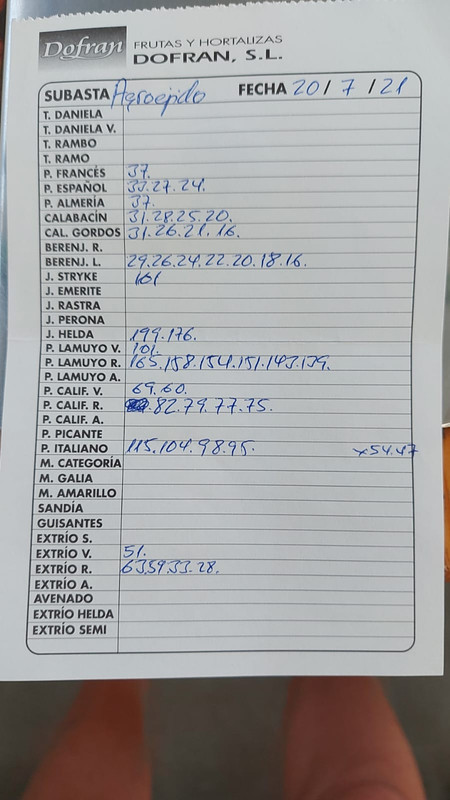 Dofran FRUTAS Y HORTALIZAS
DOFRAN, S.L.
SUBASTA Agroejido FECHA 20 / 7 / 21
T. DANIELA
T. DANIELA V.
T. RAMBO
T. RAMO
P. FRANCÉS 37.
P. ESPAÑOL 33.27.24.
P. ALMERÍA 37.
CALABACÍN 31.28.25.20.
CAL. GORDOS 31.26.21.16.
BERENJ. R.
BERENJ. L. 29.26.24.22.20.18.16.
J. STRYKE 161
J. EMERITE
J. RASTRA
J. PERONA
J. HELDA 199.176.
P. LAMUYO V. 101.
P. LAMUYO R. 165.158.154.151.143.139.
P. LAMUYO A.
P. CALIF. V. 69.60.
P. CALIF. R. .82.79.77.75.
P. CALIF. A.
P. PICANTE
P. ITALIANO 115.104.98.95. x54.47
M. CATEGORÍA
M. GALIA
M. AMARILLO
SANDÍA
GUISANTES
EXTRÍO S.
EXTRÍO V. 51.
EXTRÍO R. 63.59.33.28.
EXTRÍO A.
AVENADO
EXTRÍO HELDA
EXTRÍO SEMI